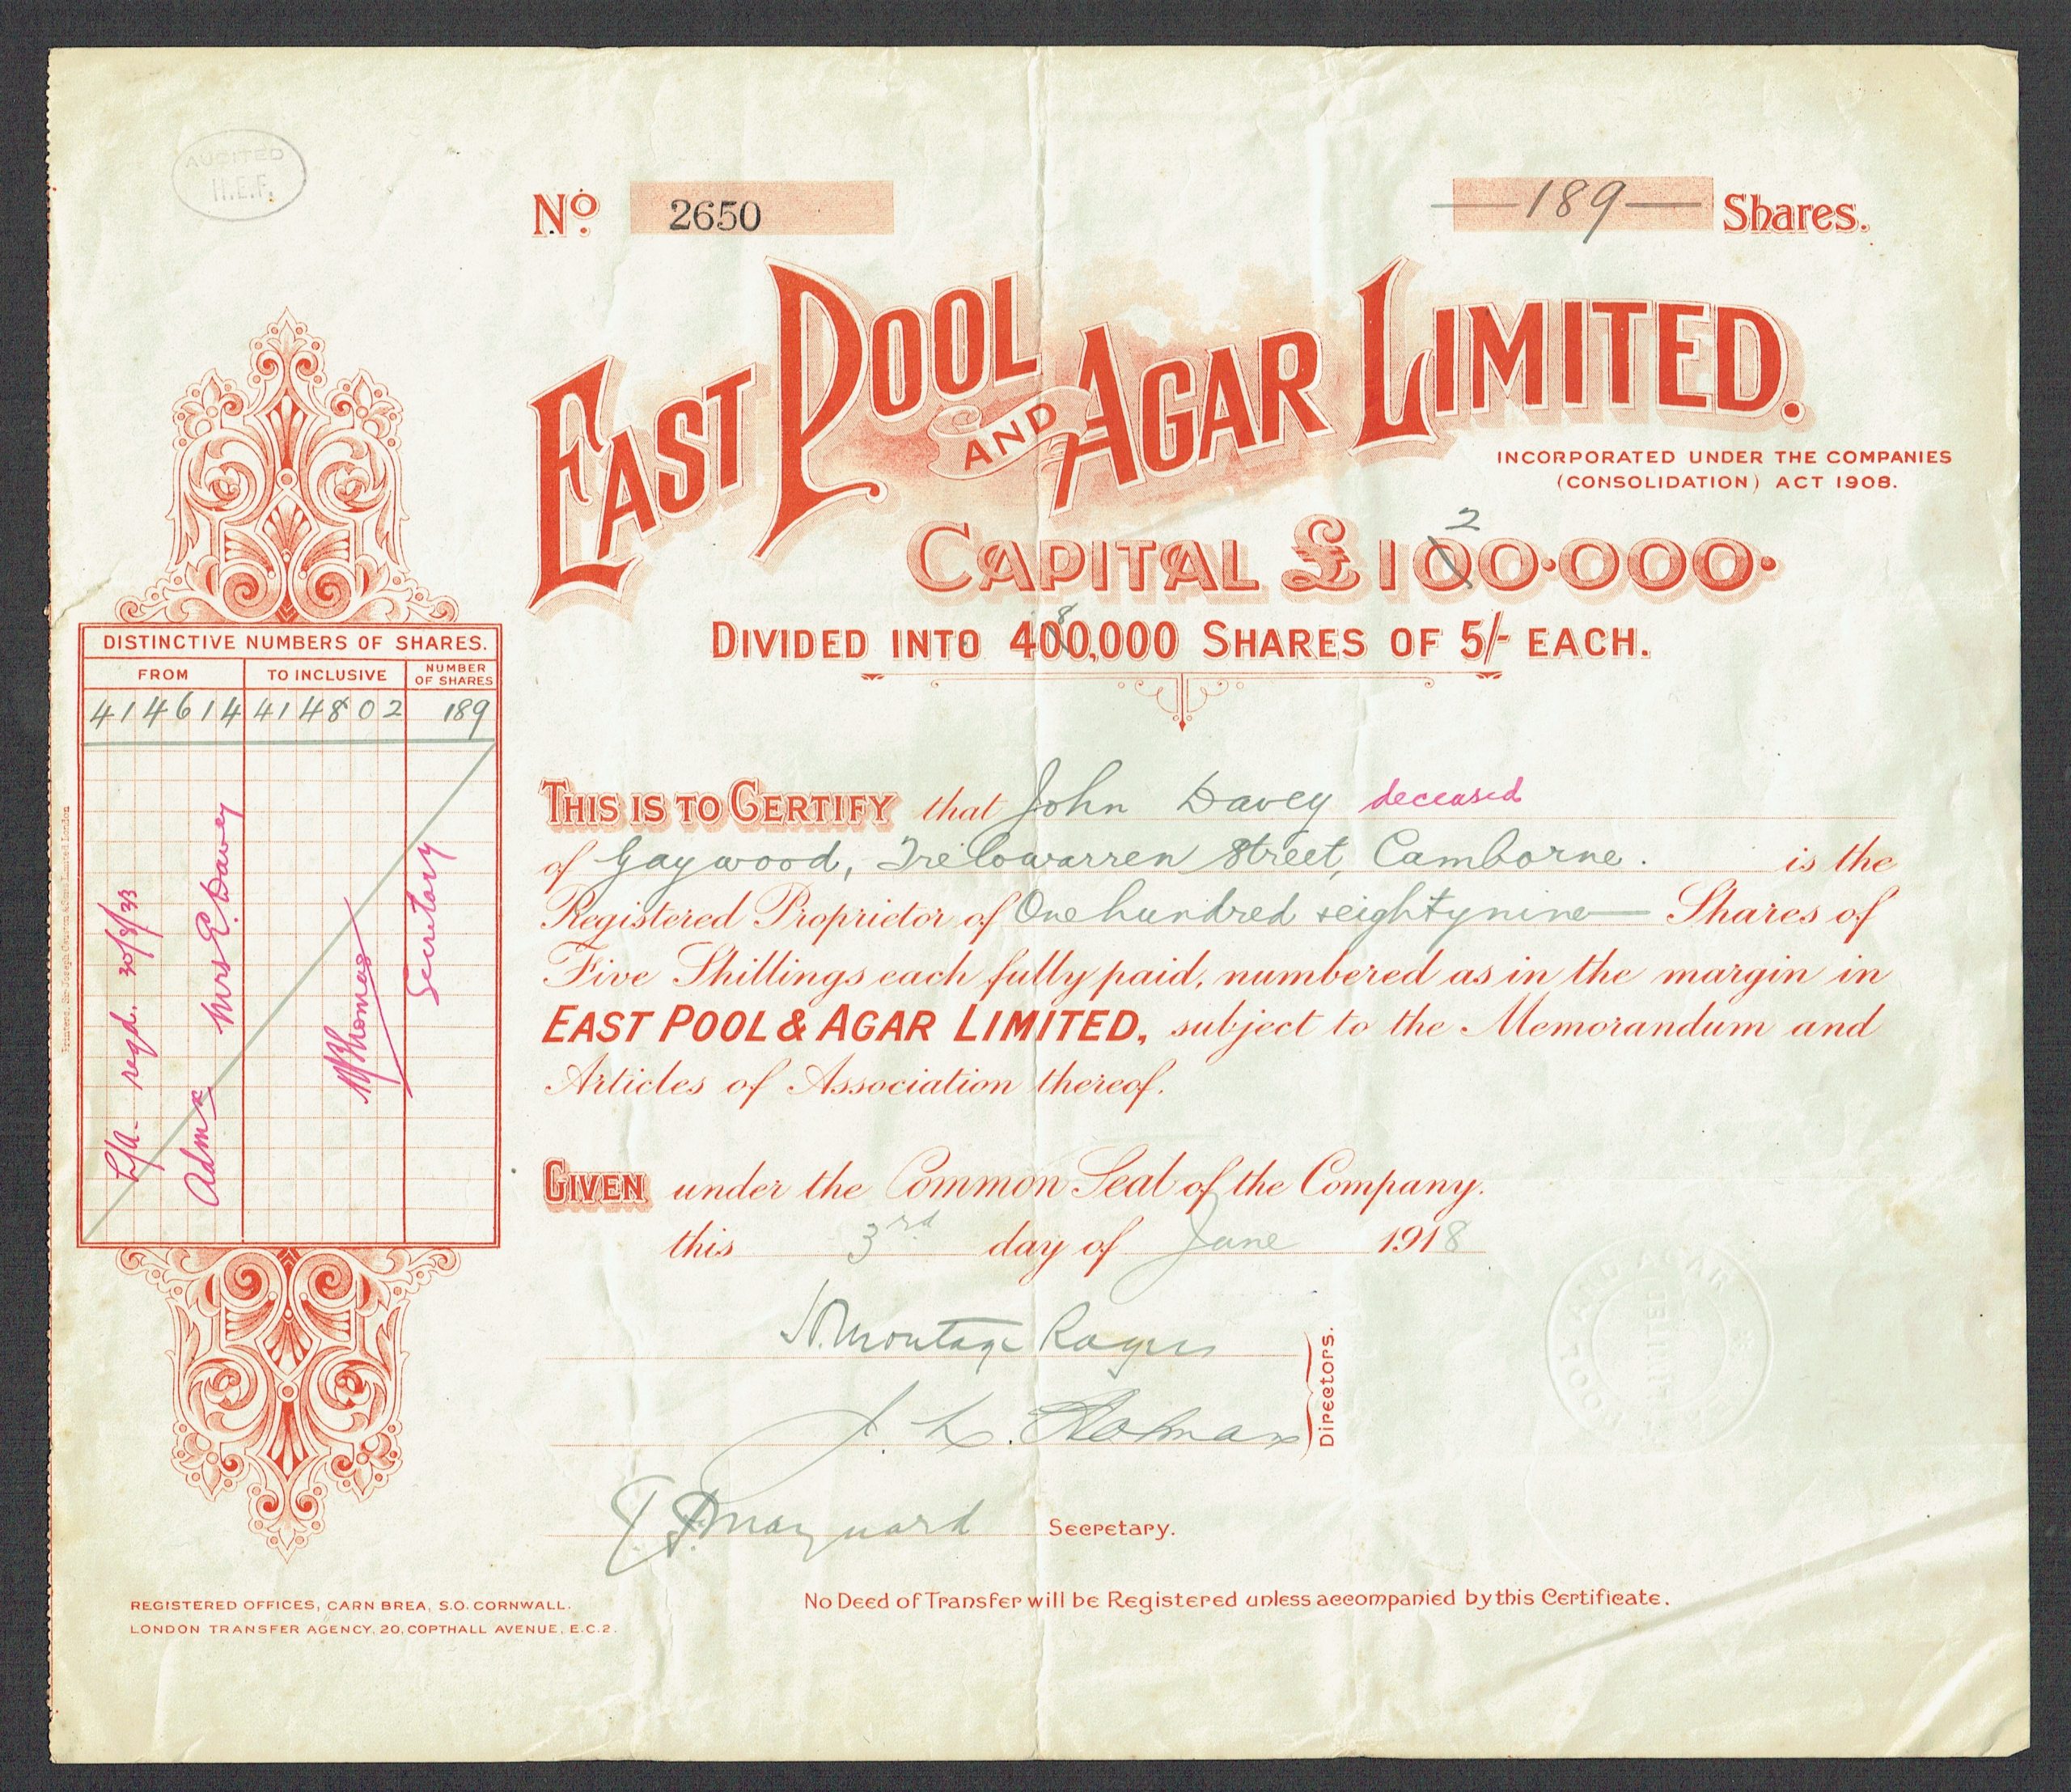 AUDITED
H.E.F.
No. 2650
—189— Shares.
EAST POOL AND AGAR LIMITED.
INCORPORATED UNDER THE COMPANIES
(CONSOLIDATION) ACT 1908.
2
CAPITAL £100·000·
8
DIVIDED INTO 400,000 SHARES OF 5/- EACH.
DISTINCTIVE NUMBERS OF SHARES.
FROM TO INCLUSIVE NUMBER OF SHARES
414614 414802 189
L/A regd. 30/4/33
Admx Mrs E. Davey
Thomas
Secretary
Printers, Sir Joseph Causton & Sons Limited London
THIS IS TO CERTIFY that John Davey deceased
of Gaywood, Trelowarren Street, Camborne. is the
Registered Proprietor of One hundred & eighty nine — Shares of
Five Shillings each fully paid, numbered as in the margin in
EAST POOL & AGAR LIMITED, subject to the Memorandum and
Articles of Association thereof.
GIVEN under the Common Seal of the Company.
this 3rd day of June 1918
Montagu Rogers
J. L. Holman
Directors.
Maynard Secretary.
POOL AND AGAR
LIMITED
REGISTERED OFFICES, CARN BREA, S.O. CORNWALL.
LONDON TRANSFER AGENCY, 20, COPTHALL AVENUE, E.C.2.
No Deed of Transfer will be Registered unless accompanied by this Certificate.